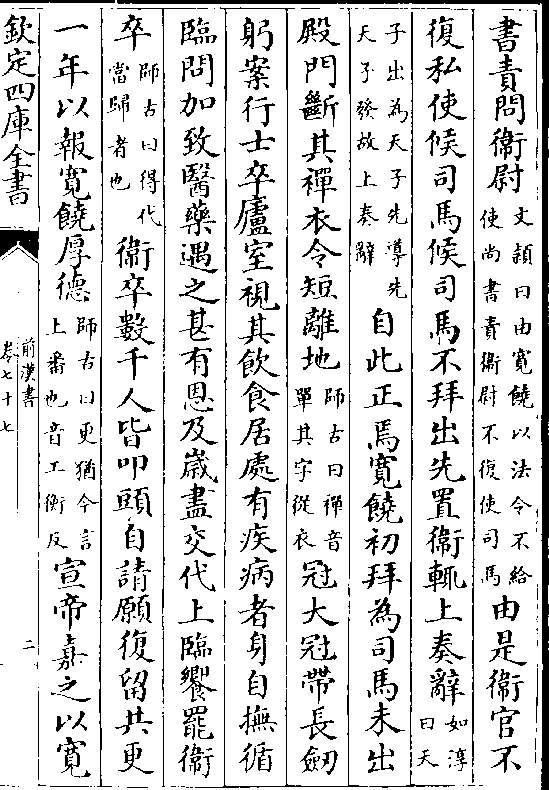 書責問衞尉文頴曰由寛饒以法令不給使尚書責衞尉不復使司馬由是衞官不
復私使候司馬候司馬不拜出先置衞輒上奏辭如淳曰天
子出為天子先導先天子發故上奏辭自此正焉寛饒初拜為司馬未出
殿門斷其襌衣令短離地師古曰襌音單其字從衣冠大冠帶長劒
躬案行士卒廬室視其飲食居處有疾病者身自撫循
臨問加致醫藥遇之甚有恩及嵗盡交代上臨饗罷衞
卒師古曰得代當歸者也衞卒數千人皆叩頭自請願復留共更
一年以報寛饒厚德師古曰更猶今言上番也音工衡反宣帝嘉之以寛
欽定四庫全書
前漢書
卷七十七
二